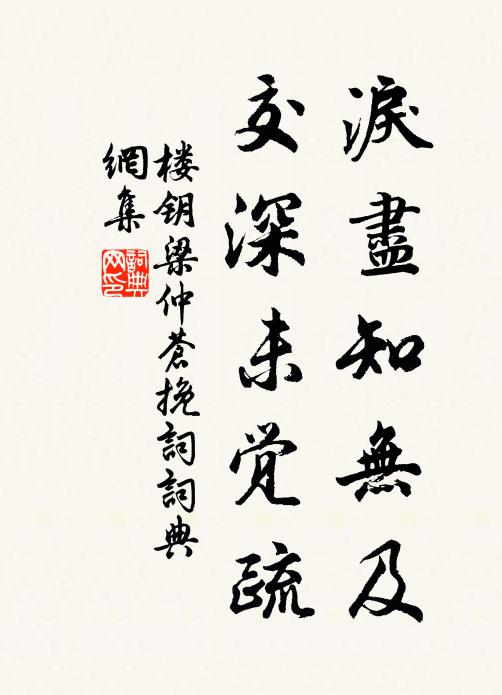 淚盡知無及
交深未觉疏
楼钥梁仲蒼挽詞詞典
網集
詞典
网印